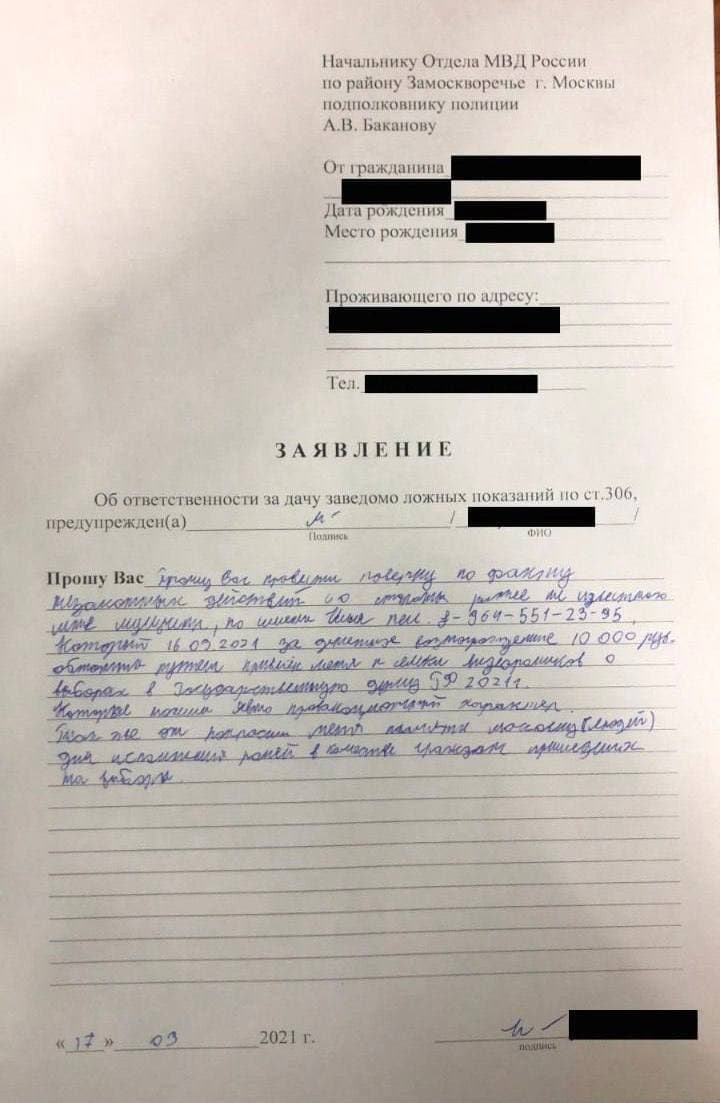 Начальнику Отдела МВД России
по району Замоскворечье г. Москвы
подполковнику полиции
А.В. Баканову
От гражданина
Дата рождения
Место рождения
Проживающего по адресу:
Тел.
ЗАЯВЛЕНИЕ
Об ответственности за дачу заведомо ложных показаний по ст.306,
предупрежден(а) / /
Подпись ФИО
Прошу Вас Прошу Вас провести поверку по факту
незаконных действий со стороны ранее не известного
мне мущины, по имени Илья тел. 8-964-551-23-95,
Который 16.09.2021 за денежное вознаграждение 10 000 руб.
путем меня к съемки видеороликов о
выборах в Государственную думу РФ 2021г.
Которые носили явно провокационный характер.
Так же он попросил меня массовку (людей)
для исполнения ролей в качестве граждан пришедших
на выборы.
«17» 09 2021 г.
подпись